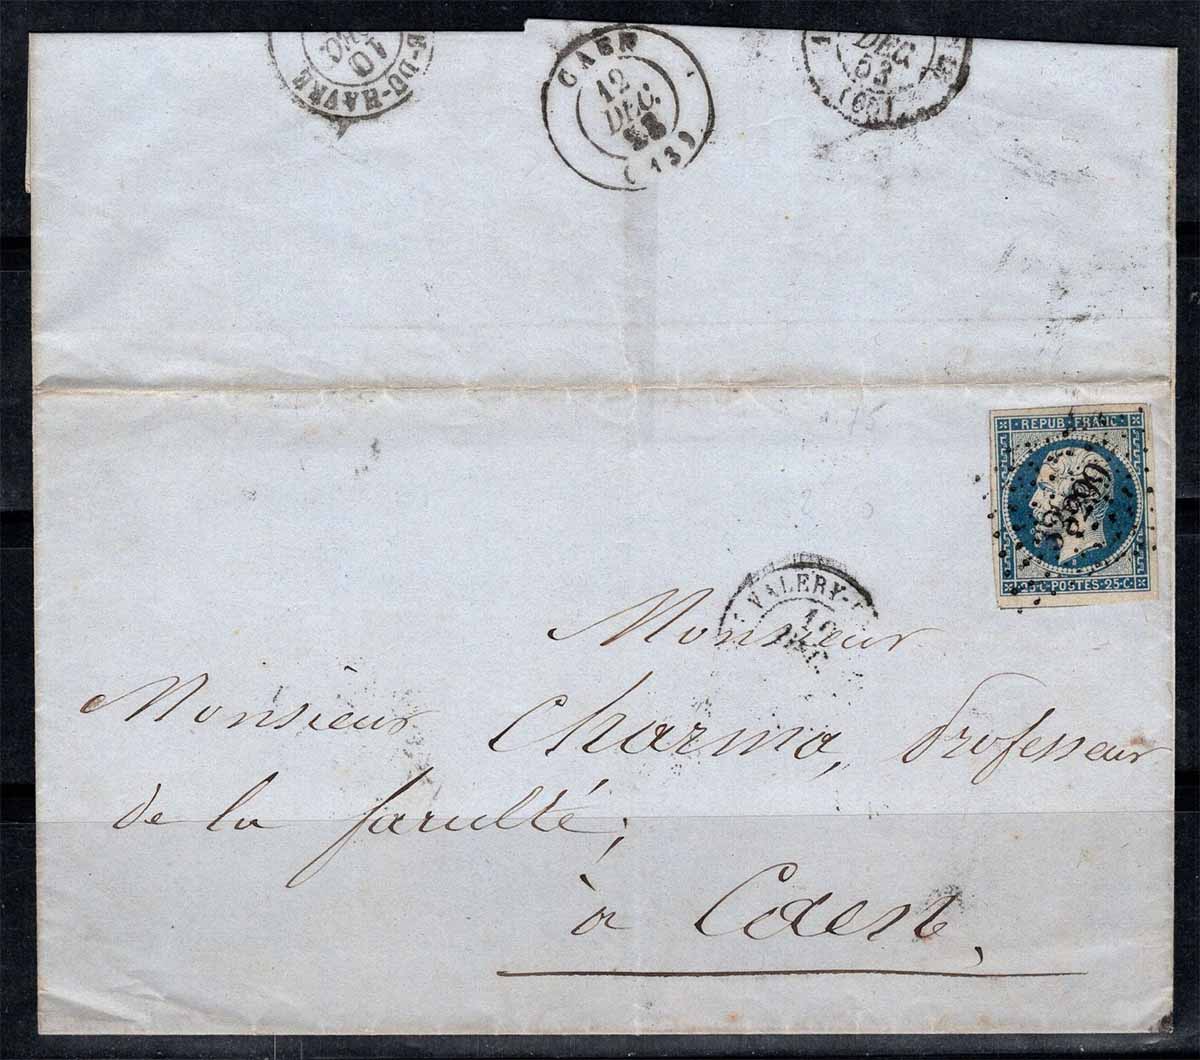 DU-HAVRE
10
CAEN
12
DEC.
(13)
DEC
53
(60)
REPUB FRANC
25·C·POSTES·25·C
VALERY
Monsieur
Monsieur Charma, Professeur
de la faculté,
à Caen,